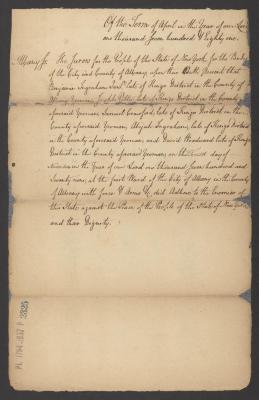 Of the Term of April in the Year of our Lord
one thousand seven hundred & Eighty one.
Albany ss. The Jurors for the People of the State of New York for the Body
of the City and County of Albany upon their Oath Present that
Benjamin Ingraham late of Kings District in the County of
Albany Yeoman, late of Kings District in the County
aforesaid Yeoman, Samuel late of Kings District in the
County aforesaid Yeoman, Abijah Ingraham, late of Kings District
in the County aforesaid Yeoman, and David Woodward late of Kings
District in the County aforesaid Yeoman, on the day of
in the Year of our Lord one thousand seven hundred and
Seventy nine, at the first Ward of the City of Albany in the County
of Albany with force & Arms &c, did Adhere to the Enemies of
this State against the Peace of the People of the State of New York
and their Dignity.